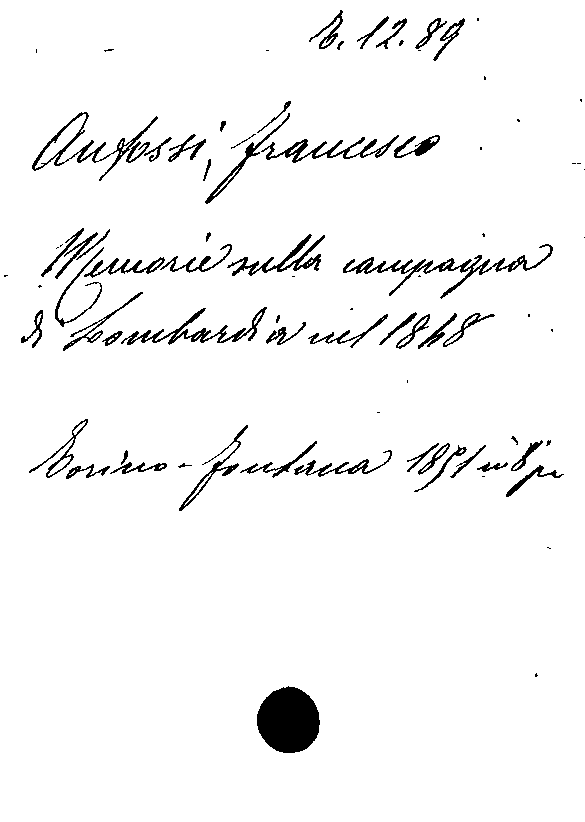 E. 12. 89
Anfossi, Francesco
Memorie sulla campagna
di Lombardia nel 1848
Torino - Fontana 1851 in 8°